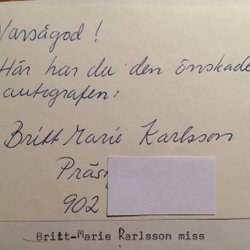 Varsågod!
Här har du den önskade
autografen:
Britt Marie Karlsson
Präs
902
Britt-Marie Karlsson miss